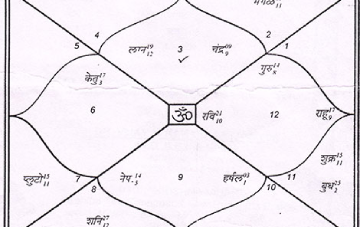 मंगळ 11
4
2
5
लग्न 19 12
3
चंद्र 09 9
1
केतु 17 3
गुरु 14 8
6
ॐ
रवि 21 10
12
राहू 17 9
शुक्र 15 11
प्लुटो 15 11
7
नेप. 14 5
9
हर्षल 03 1
11
8
10
बुध 25 2
शनि 27 12